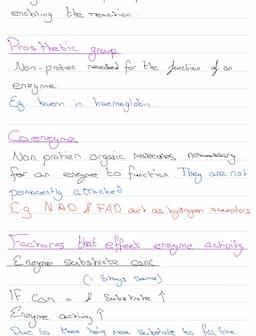 enabling the reaction.
Prosthetic group
Non-protien needed for the function of an
enzyme
Eg. haem in haemaglobin.
Coenzyme
Non protien organic molecules necessary
for an enzyme to function. They are not
permanently attached
Eg NAD & FAD act as hydrogen acceptors
Factors that effect enzyme activity
Enzyme substrate conc
(: Stays same)
IF Con = & Substrate ↑
Enzyme activity ↑
Due to there being more substrate to for the